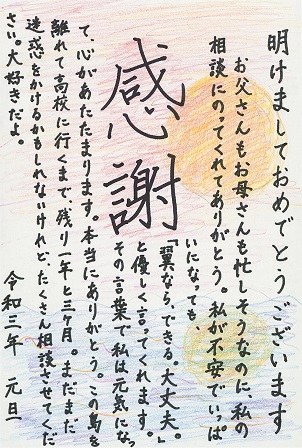 明けましておめでとうございます
お父さんもお母さんも忙しそうなのに、私の
相談にのってくれてありがとう。私が不安でいっぱ
いになっても、
「翼なら、できる。大丈夫」
と優しく言ってくれます。
その言葉で私は元気になっ
感謝
て、心があたたまります。本当にありがとう。この島を
離れて高校に行くまで、残り一年と三ヶ月。まだまだ
迷惑をかけるかもしれないけれど、たくさん相談させてくだ
さい。大好きだよ。
令和三年 元旦